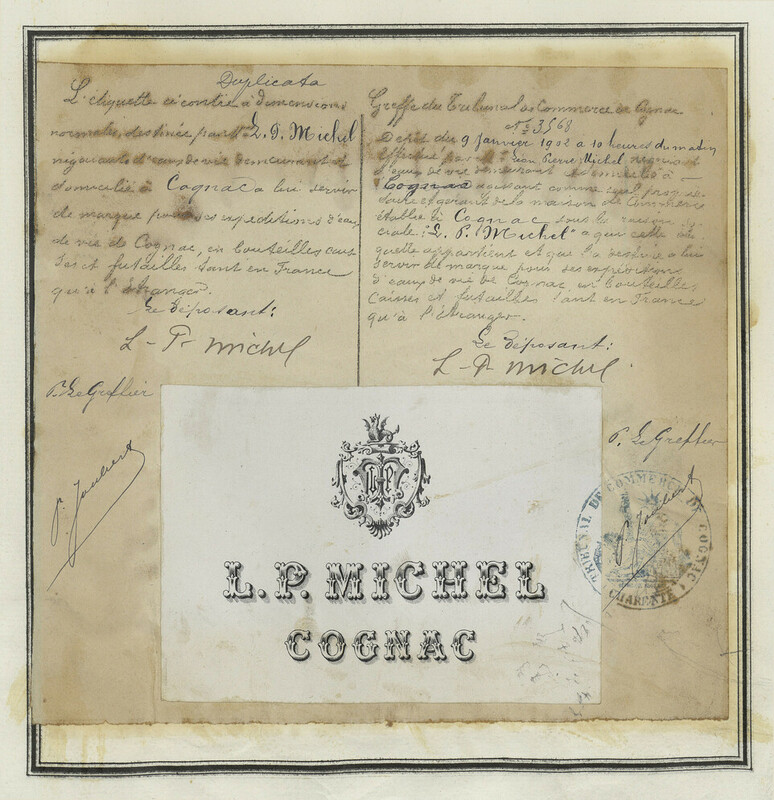 Duplicata
L'étiquette ci contre à dimensions
normales, destinée par Mr L. P. Michel
négociant d'eaux de vie demeurant et
domicilié à Cognac a lui servir
de marque pour ses expéditions d'eaux
de vie de Cognac, en bouteilles cais
ses et futailles tant en France
qu'à l'étranger.
Le Déposant:
L-P. Michel
P. Le Greffier
P. Joubert
Greffe du Tribunal de Commerce de Cognac
No 3568
Dépôt du 9 Janvier 1902 à 10 heures du matin
effectué par Mr Jean Pierre Michel négociant
d'eaux de vie demeurant et domicilié à
Cognac agissant comme seul proprié
taire et gérant de la maison de Commerce
établie à Cognac sous la raison so
ciale: "L. P. Michel" a que cette éti
quette appartient et que la destine a lui
servir de marque pour ses expéditions
d'eaux de vie de Cognac en bouteilles,
caisses et futailles tant en France
qu'à l'étranger.
Le Déposant:
L-P. Michel
P. Le Greffier
P. Joubert
TRIBUNAL DE COMMERCE DE COGNAC
CHARENTE
L.P. MICHEL
COGNAC